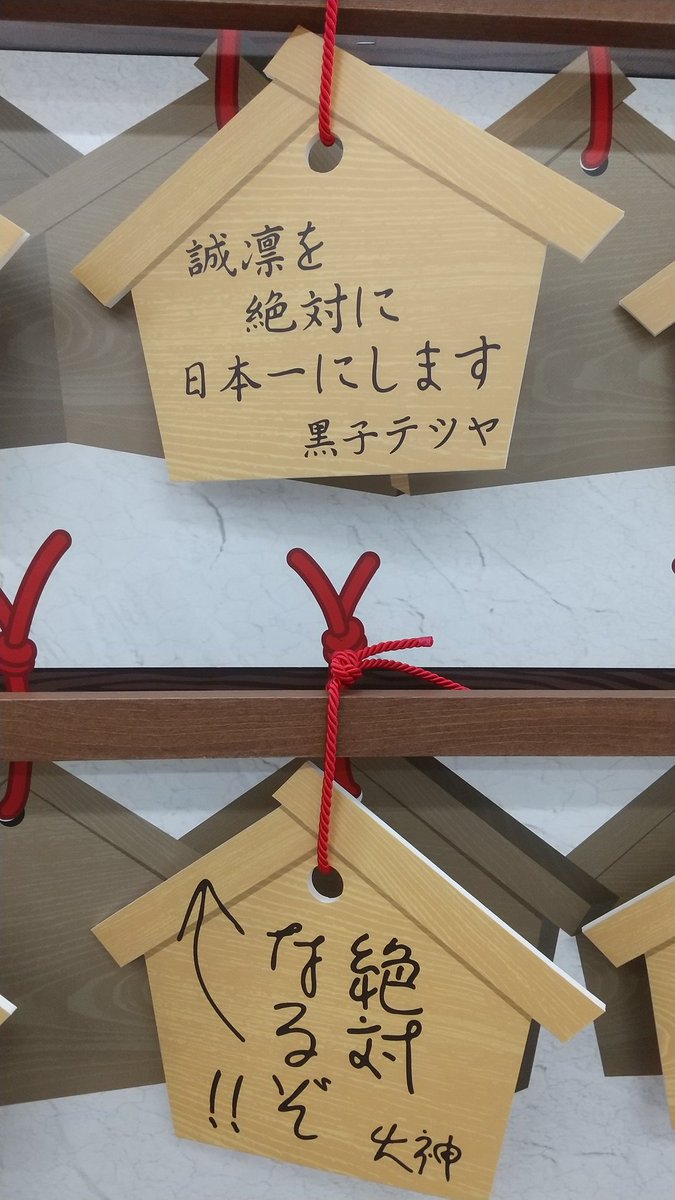 誠凛を
絶対に
日本一にします
黒子テツヤ
絶対
なるぞ
!!
火神